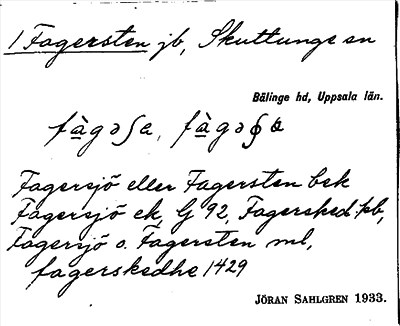 1 Fagersten jb, Skuttunge sn
Bälinge hd, Uppsala län.
fàgəʃa, fàgə
Fagersjö eller Fagersten bek
Fagersjö ek, G 92, Fagersked. kb,
Fagersjö o. Fagersten ml,
fagerskedhe 1429
JÖRAN SAHLGREN 1933.